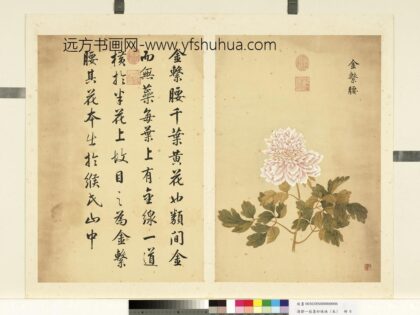 远方书画网 - www.yfshuhua.com
金繫腰
金繫腰千葉黃花也類間金
而無蘂每葉上有金線一道
橫於半花上故目之為金繫
腰其花本出於緱氏山中